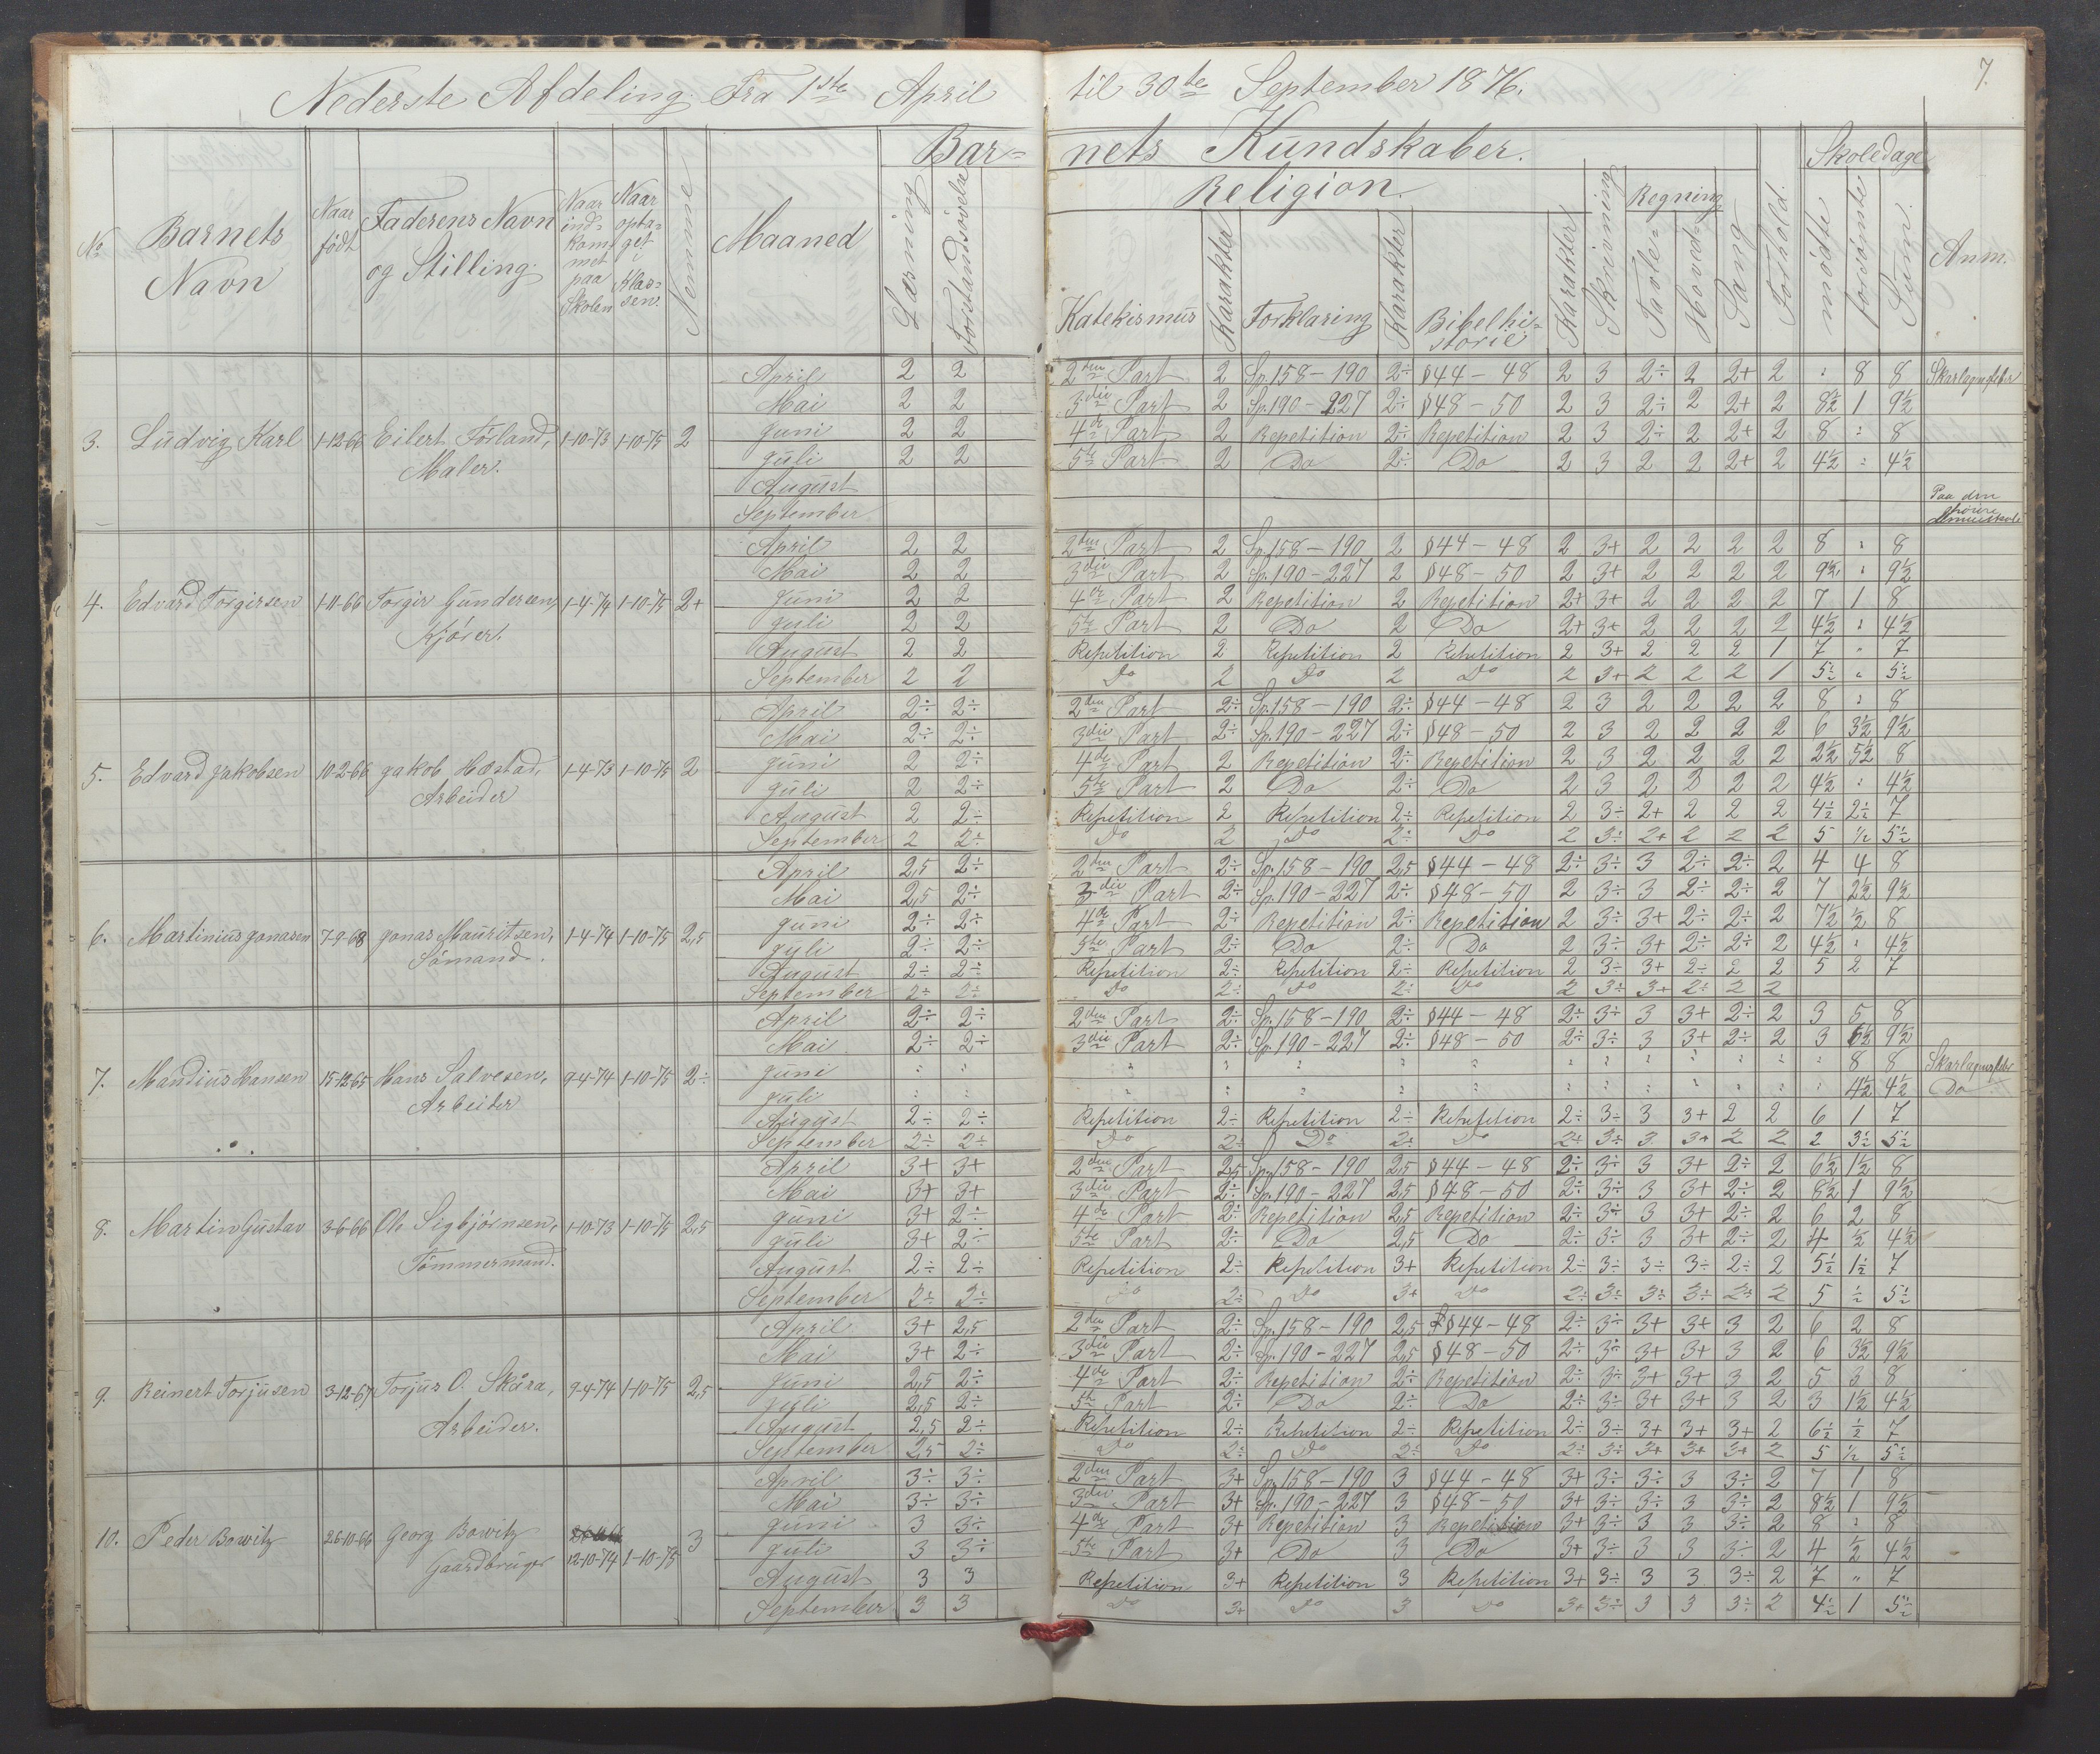 Nederste Afdeling. Fra 1ste April til 30te September 1876. 7.
Barnets Kundskaber. Skoledage
Religion. Regning
No Barnets Navn Naar født Faderens Navn og Stilling. Naar indkommet paa Skolen Naar optaget i Klassen. Nemme Maaned Læsning Forstandsøvelse Katekismus Karakter Forklaring Karakter Bibelhistorie Karakter Skrivning Tavle- Hoved- Sang Forhold. mødte forsømte Sum. Anm.
3. Ludvig Karl 1-12-66 Eilert Förland, Maler. 1-10-73 1-10-75 2
April 2 2 2den Part 2 Sp. 158-190 2÷ §44-48 2 3 2÷ 2 2+ 2 : 8 8 Skarlagensfeber
Mai 2 2 3die Part 2 Sp. 190-227 2÷ §48-50 2 3 2÷ 2 2+ 2 8½ 1 9½
Juni 2 2 4de Part 2 Repetition 2÷ Repetition 2 3 2÷ 2 2+ 2 8 : 8
Juli 2 2 5te Part 2 Do 2÷ Do 2 3 2 2 2+ 2 4½ : 4½
August
September Paa den
4. Edvard Torgirsen 1-11-66 Torgir Gundersen, Kjører. 1-4-74 1-10-75 2+
April 2 2 2den Part 2 Sp. 158-190 2 §44-48 2 3+ 2 2 2 2 8 : 8
Mai 2 2 3die Part 2 Sp. 190-227 2 §48-50 2 3+ 2 2 2 2 9½ : 9½
Juni 2 2 4de Part 2 Repetition 2 Repetition 2+ 3+ 2 2 2 2 7 1 8
Juli 2 2 5te Part 2 Do 2 Do 2+ 3+ 2 2 2 2 4½ : 4½
August 2 2 Repetition 2 Repetition 2 Repetition 2 3+ 2 2 2 1 7 " 7
September 2 2 Do 2 Do 2 Do 2 3+ 2 2 2 1 5½ " 5½
5. Edvard Jakobsen 10-2-66 Jakob Hæstad, Arbeider 1-4-73 1-10-75 2
April 2÷ 2÷ 2den Part 2÷ Sp. 158-190 2÷ §44-48 2 3 2 2 2 2 8 : 8
Mai 2÷ 2÷ 3die Part 2÷ Sp. 190-227 2÷ §48-50 2 3 2 2 2 2 6 3½ 9½
Juni 2 2÷ 4de Part 2 Repetition 2÷ Repetition 2 3 2 2 2 2 2½ 5½ 8
Juli 2 2÷ 5te Part 2 Do 2÷ Do 2 3 2 2 2 2 4½ : 4½
August 2 2÷ Repetition 2 Repetition 2÷ Repetition 2 3÷ 2+ 2 2 2 4½ 2½ 7
September 2 2÷ Do 2 Do 2÷ Do 2 3÷ 2+ 2 2 2 5 ½ 5½
6. Martinius Jonasen 7-9-68 Jonas Mauritsen, Sømand. 1-4-74 1-10-75 2,5
April 2,5 2÷ 2den Part 2÷ Sp. 158-190 2,5 §44-48 2÷ 3÷ 3 2÷ 2÷ 2 4 4 8
Mai 2,5 2÷ 3die Part 2÷ Sp. 190-227 2÷ §48-50 2 3÷ 3 2÷ 2÷ 2 7 2½ 9½
Juni 2÷ 2÷ 4de Part 2÷ Repetition 2÷ Repetition 2 3÷ 3+ 2÷ 2÷ 2 7½ ½ 8
Juli 2÷ 2÷ 5te Part 2÷ Do 2÷ Do 2 3÷ 3+ 2÷ 2÷ 2 4½ : 4½
August 2÷ 2÷ Repetition 2÷ Repetition 2÷ Repetition 2 3÷ 3+ 2÷ 2 2 5 2 7
September 2÷ 2÷ Do 2÷ Do 2÷ Do 2 3÷ 3+ 2÷ 2 2
7. Mandius Hansen 15-12-65 Hans Salvesen, Arbeider 9-4-74 1-10-75 2÷
April 2÷ 2÷ 2den Part 2÷ Sp. 158-190 2÷ §44-48 2÷ 3÷ 3 3+ 2÷ 2 3 5 8
Mai 2÷ 2÷ 3die Part 2÷ Sp. 190-227 2÷ §48-50 2÷ 3÷ 3 3+ 2÷ 2 3 6½ 9½
Juni : : : : : : : : : : : : : : 8 8 Skarlagensfeber
Juli : : : : : : : : : : : : : : 4½ 4½ Do
August 2÷ 2÷ Repetition 2÷ Repetition 2÷ Repetition 2÷ 3÷ 3 3+ 2 2 6 1 7
September 2÷ 2÷ Do 2÷ Do 2÷ Do 2+ 3÷ 3 3+ 2 2 2 3½ 5½
8. Martin Gustav 3-6-66 Ole Sigbjørnsen, Tømmermand. 1-10-73 1-10-75 2,5
April 3+ 3+ 2den Part 2,5 Sp. 158-190 2,5 §44-48 2÷ 3÷ 3 3+ 2÷ 2 6½ 1½ 8
Mai 3+ 3+ 3die Part 2÷ Sp. 190-227 2,5 §48-50 2÷ 3÷ 3 3+ 2÷ 2 8½ 1 9½
Juni 3+ 2÷ 4de Part 2÷ Repetition 2,5 Repetition 2÷ 3÷ 3 3+ 2÷ 2 6 2 8
Juli 3+ 2÷ 5te Part 2÷ Do 2,5 Do 2÷ 3÷ 3 3+ 2÷ 2 4 ½ 4½
August 2÷ 2÷ Repetition 2÷ Repetition 3+ Repetition 2÷ 3÷ 3÷ 3÷ 2÷ 2 5½ 1½ 7
September 2÷ 2÷ Do 2÷ Do 3+ Do 2÷ 3÷ 3÷ 3÷ 2+ 2 5 ½ 5½
9. Reinert Torjusen 3-12-67 Torjus O. Skåra, Arbeider. 9-4-74 1-10-75 2,5
April 3+ 2,5 2den Part 2÷ Sp. 158-190 2,5 §44-48 2÷ 3÷ 3+ 3+ 3 2 6 2 8
Mai 3+ 2÷ 3die Part 2÷ Sp. 190-227 2,5 §48-50 2÷ 3÷ 3+ 3+ 3 2 6 3½ 9½
Juni 2,5 2÷ 4de Part 2÷ Repetition 2÷ Repetition 2÷ 3÷ 3+ 3+ 3 2 5 3 8
Juli 2,5 2÷ 5te Part 2÷ Do 2÷ Do 2÷ 3÷ 3+ 3+ 3 2 3 1½ 4½
August 2,5 2÷ Repetition 2÷ Repetition 2÷ Repetition 2÷ 3÷ 3+ 3+ 3+ 2 6½ ½ 7
September 2,5 2÷ Do 2÷ Do 2÷ Do 2÷ 3÷ 3+ 3+ 3+ 2 5 ½ 5½
10. Peder Bowitz 26-10-66 Georg Bowitz Gaardbruger 12-10-74 1-10-75 3
April 3÷ 3÷ 2den Part 3+ Sp. 158-190 3 §44-48 3+ 3÷ 3÷ 3 3÷ 2 7 1 8
Mai 3÷ 3÷ 3die Part 3+ Sp. 190-227 3 §48-50 3+ 3÷ 3÷ 3 3÷ 2 8½ 1 9½
Juni 3 3÷ 4de Part 3+ Repetition 3 Repetition 3+ 3÷ 3 3 3÷ 2 8 : 8
Juli 3 3÷ 5te Part 3+ Do 3 Do 3+ 3÷ 3 3 3÷ 2 4 ½ 4½
August 3 3 Repetition 3+ Repetition 3 Repetition 3+ 3÷ 3 3 3÷ 2 7 " 7
September 3 3 Do 3+ Do 3 Do 3+ 3÷ 3 3 3÷ 2 4½ 1 5½